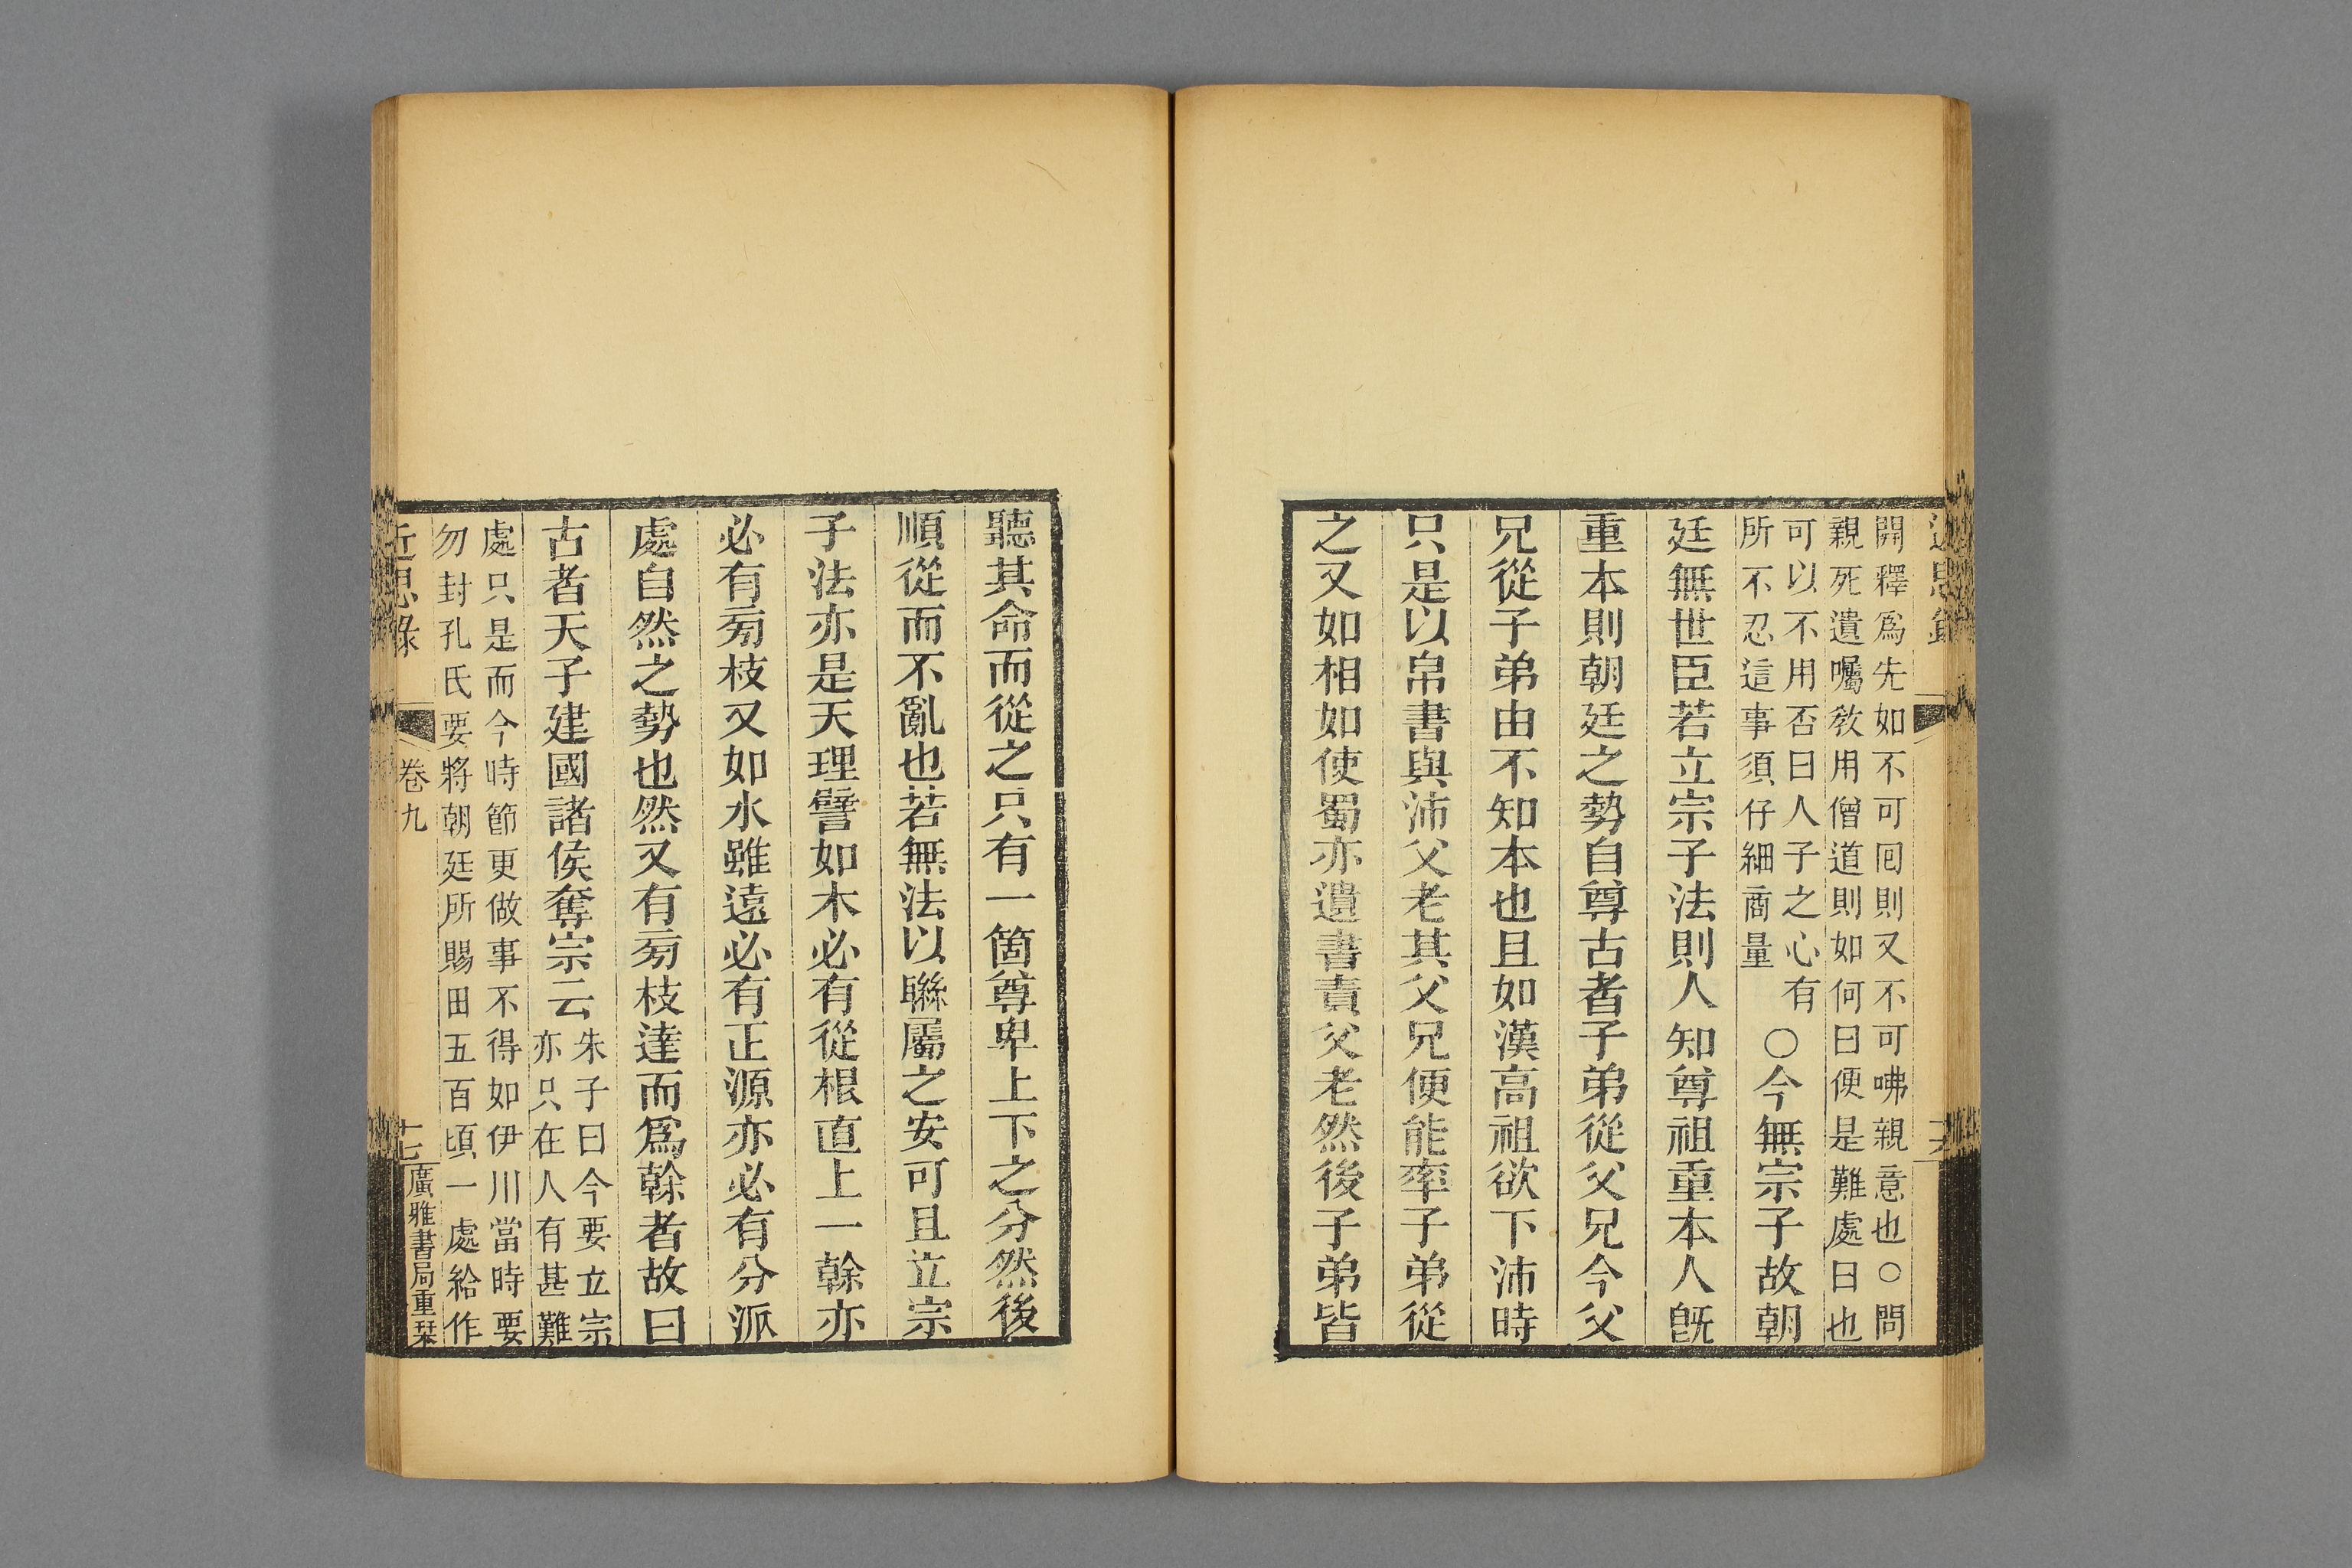 開釋爲先如不可囘則又不可咈親意也○問
親死遺囑敎用僧道則如何曰便是難處曰也
可以不用否曰人子之心有
所不忍這事須仔細商量
○今無宗子故朝
廷無世臣若立宗子法則人知尊祖重本人旣
重本則朝廷之勢自尊古者子弟從父兄今父
兄從子弟由不知本也且如漢高祖欲下沛時
只是以帛書與沛父老其父兄便能率子弟從
之又如相如使蜀亦遺書責父老然後子弟皆
聽其命而從之只有一箇尊卑上下之分然後
順從而不亂也若無法以聯屬之安可且立宗
子法亦是天理譬如木必有從根直上一榦亦
必有旁枝又如水雖遠必有正源亦必有分派
處自然之勢也然又有旁枝達而爲榦者故曰
古者天子建國諸侯奪宗云
朱子曰今要立宗
亦只在人有甚難
處只是而今時節更做事不得如伊川當時要
勿封孔氏要將朝廷所賜田五百頃一處給作
近思錄 卷九 十七 廣雅書局重栞